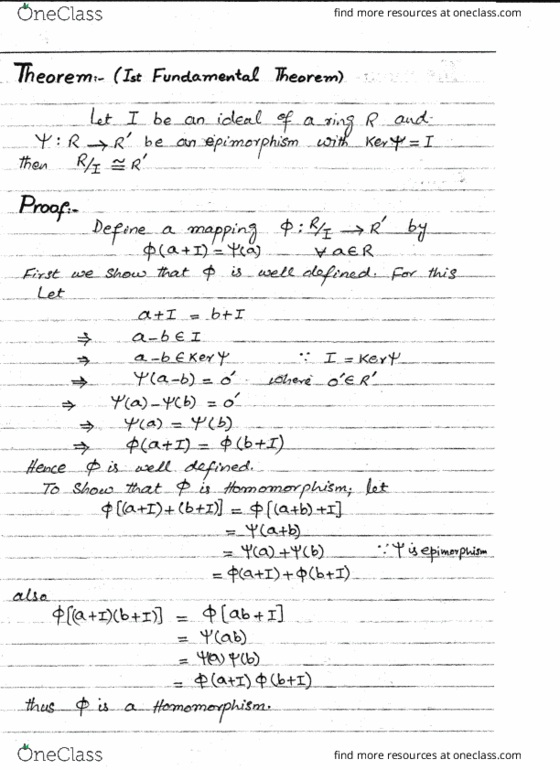 OneClass find more resources at oneclass.com
Theorem:- (Ist Fundamental Theorem)
Let I be an ideal of a ring R and
Ψ : R → R′ be an epimorphism with Ker Ψ = I
then R/I ≅ R′
Proof:-
Define a mapping Φ : R/I → R′ by
Φ(a+I) = Ψ(a) ∀ a∈R
First we show that Φ is well defined. For this
Let
a+I = b+I
⇒ a-b ∈ I
⇒ a-b ∈ Ker Ψ ∵ I = Ker Ψ
⇒ Ψ(a-b) = 0′ where 0′∈R′
⇒ Ψ(a)-Ψ(b) = 0′
⇒ Ψ(a) = Ψ(b)
⇒ Φ(a+I) = Φ(b+I)
Hence Φ is well defined.
To show that Φ is Homomorphism; let
Φ[(a+I)+(b+I)] = Φ[(a+b)+I]
= Ψ(a+b)
= Ψ(a)+Ψ(b) ∵ Ψ is epimorphism
= Φ(a+I)+Φ(b+I)
also
Φ[(a+I)(b+I)] = Φ[ab+I]
= Ψ(ab)
= Ψ(a)Ψ(b)
= Φ(a+I)Φ(b+I)
thus Φ is a Homomorphism.
OneClass find more resources at oneclass.com